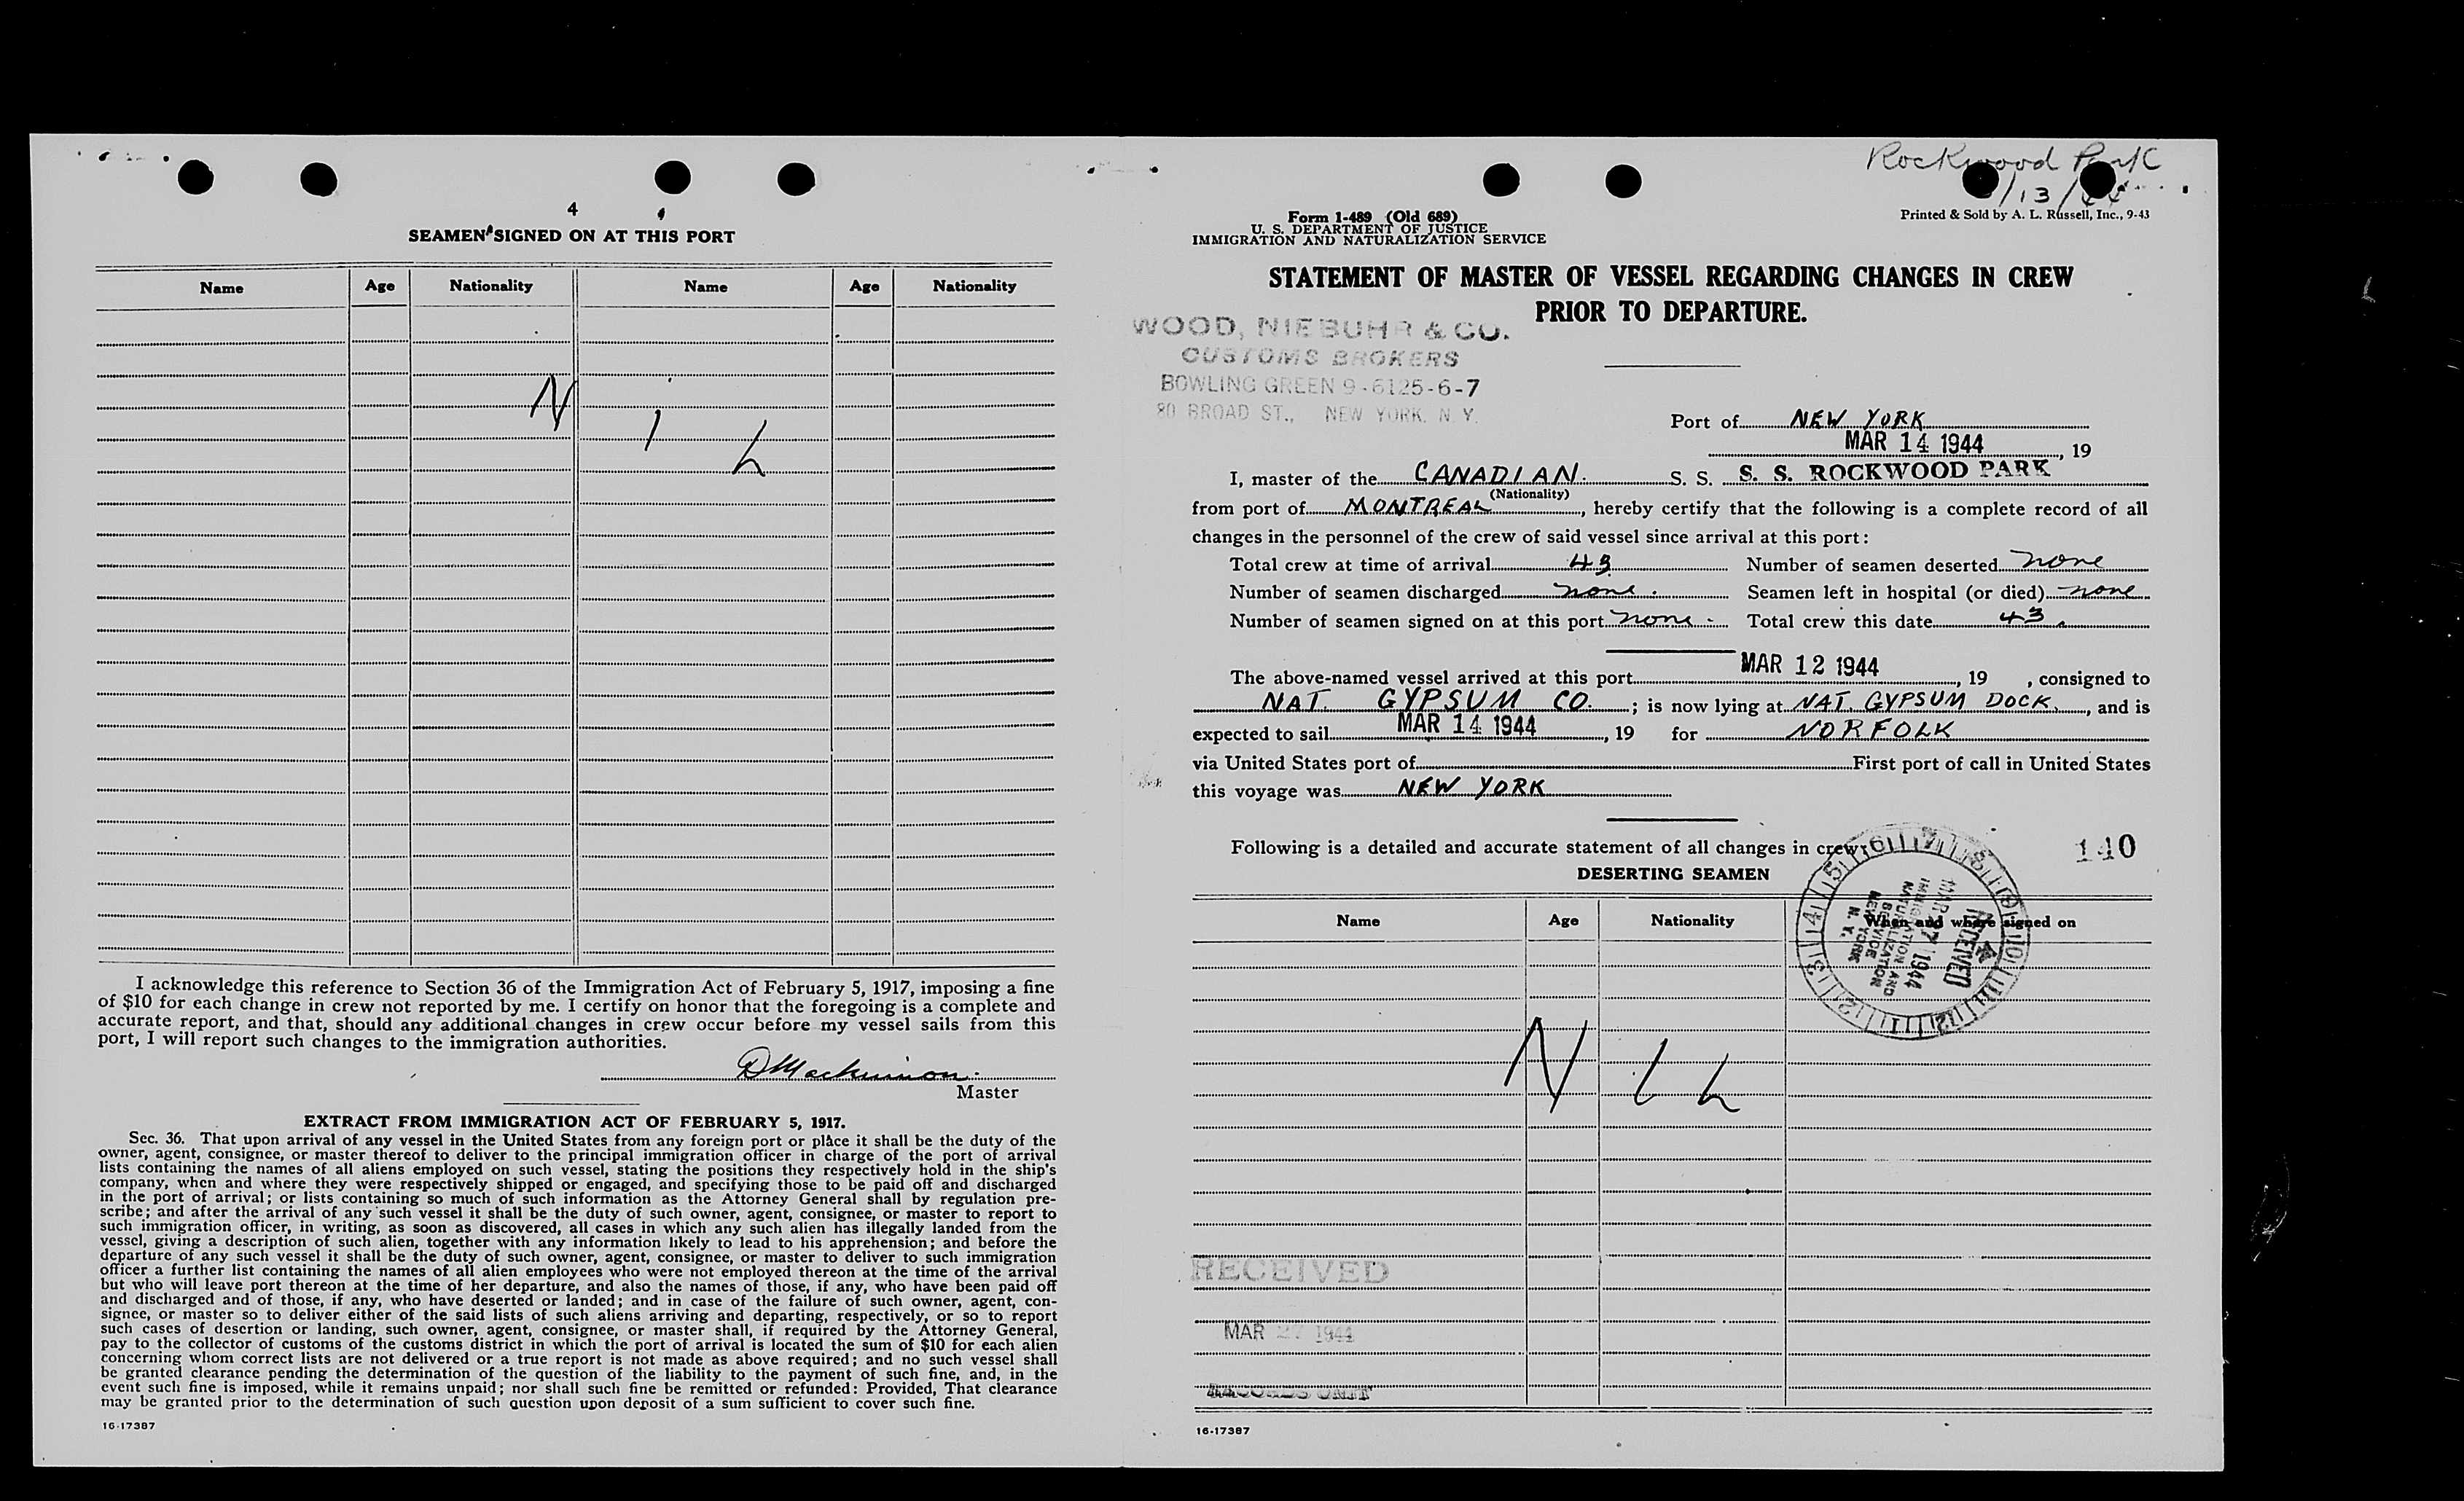 4
SEAMEN SIGNED ON AT THIS PORT
Name Age Nationality Name Age Nationality
N i L
I acknowledge this reference to Section 36 of the Immigration Act of February 5, 1917, imposing a fine
of $10 for each change in crew not reported by me. I certify on honor that the foregoing is a complete and
accurate report, and that, should any additional changes in crew occur before my vessel sails from this
port, I will report such changes to the immigration authorities.
D Mackinnon.
Master
EXTRACT FROM IMMIGRATION ACT OF FEBRUARY 5, 1917.
Sec. 36. That upon arrival of any vessel in the United States from any foreign port or place it shall be the duty of the
owner, agent, consignee, or master thereof to deliver to the principal immigration officer in charge of the port of arrival
lists containing the names of all aliens employed on such vessel, stating the positions they respectively hold in the ship's
company, when and where they were respectively shipped or engaged, and specifying those to be paid off and discharged
in the port of arrival; or lists containing so much of such information as the Attorney General shall by regulation pre-
scribe; and after the arrival of any such vessel it shall be the duty of such owner, agent, consignee, or master to report to
such immigration officer, in writing, as soon as discovered, all cases in which any such alien has illegally landed from the
vessel, giving a description of such alien, together with any information likely to lead to his apprehension; and before the
departure of any such vessel it shall be the duty of such owner, agent, consignee, or master to deliver to such immigration
officer a further list containing the names of all alien employees who were not employed thereon at the time of the arrival
but who will leave port thereon at the time of her departure, and also the names of those, if any, who have been paid off
and discharged and of those, if any, who have deserted or landed; and in case of the failure of such owner, agent, con-
signee, or master so to deliver either of the said lists of such aliens arriving and departing, respectively, or so to report
such cases of desertion or landing, such owner, agent, consignee, or master shall, if required by the Attorney General,
pay to the collector of customs of the customs district in which the port of arrival is located the sum of $10 for each alien
concerning whom correct lists are not delivered or a true report is not made as above required; and no such vessel shall
be granted clearance pending the determination of the question of the liability to the payment of such fine, and, in the
event such fine is imposed, while it remains unpaid; nor shall such fine be remitted or refunded: Provided, That clearance
may be granted prior to the determination of such question upon deposit of a sum sufficient to cover such fine.
16-17387
Rockwood Park
/13/44
Form 1-489 (Old 689)
U. S. DEPARTMENT OF JUSTICE
IMMIGRATION AND NATURALIZATION SERVICE
Printed & Sold by A. L. Russell, Inc., 9-43
STATEMENT OF MASTER OF VESSEL REGARDING CHANGES IN CREW
PRIOR TO DEPARTURE.
WOOD, NIEBUHR & CO.
CUSTOMS BROKERS
BOWLING GREEN 9-6125-6-7
80 BROAD ST., NEW YORK, N. Y.
Port of NEW YORK
MAR 14 1944, 19
I, master of the CANADIAN. S. S. S. S. ROCKWOOD PARK
(Nationality)
from port of MONTREAL, hereby certify that the following is a complete record of all
changes in the personnel of the crew of said vessel since arrival at this port:
Total crew at time of arrival 43 Number of seamen deserted none
Number of seamen discharged none. Seamen left in hospital (or died) none
Number of seamen signed on at this port none - Total crew this date 43.
The above-named vessel arrived at this port MAR 12 1944, 19 , consigned to
NAT. GYPSUM CO.; is now lying at NAT. GYPSUM DOCK., and is
expected to sail MAR 14 1944, 19 for NORFOLK
via United States port of First port of call in United States
this voyage was NEW YORK
Following is a detailed and accurate statement of all changes in crew:
140
DESERTING SEAMEN
Name Age Nationality When and where signed on
RECEIVED
1944
IMMIGRATION AND
NATURALIZATION
SERVICE
NEW YORK
N. Y.
N i L
RECEIVED
MAR 27 1944
RECORDS UNIT
16-17387